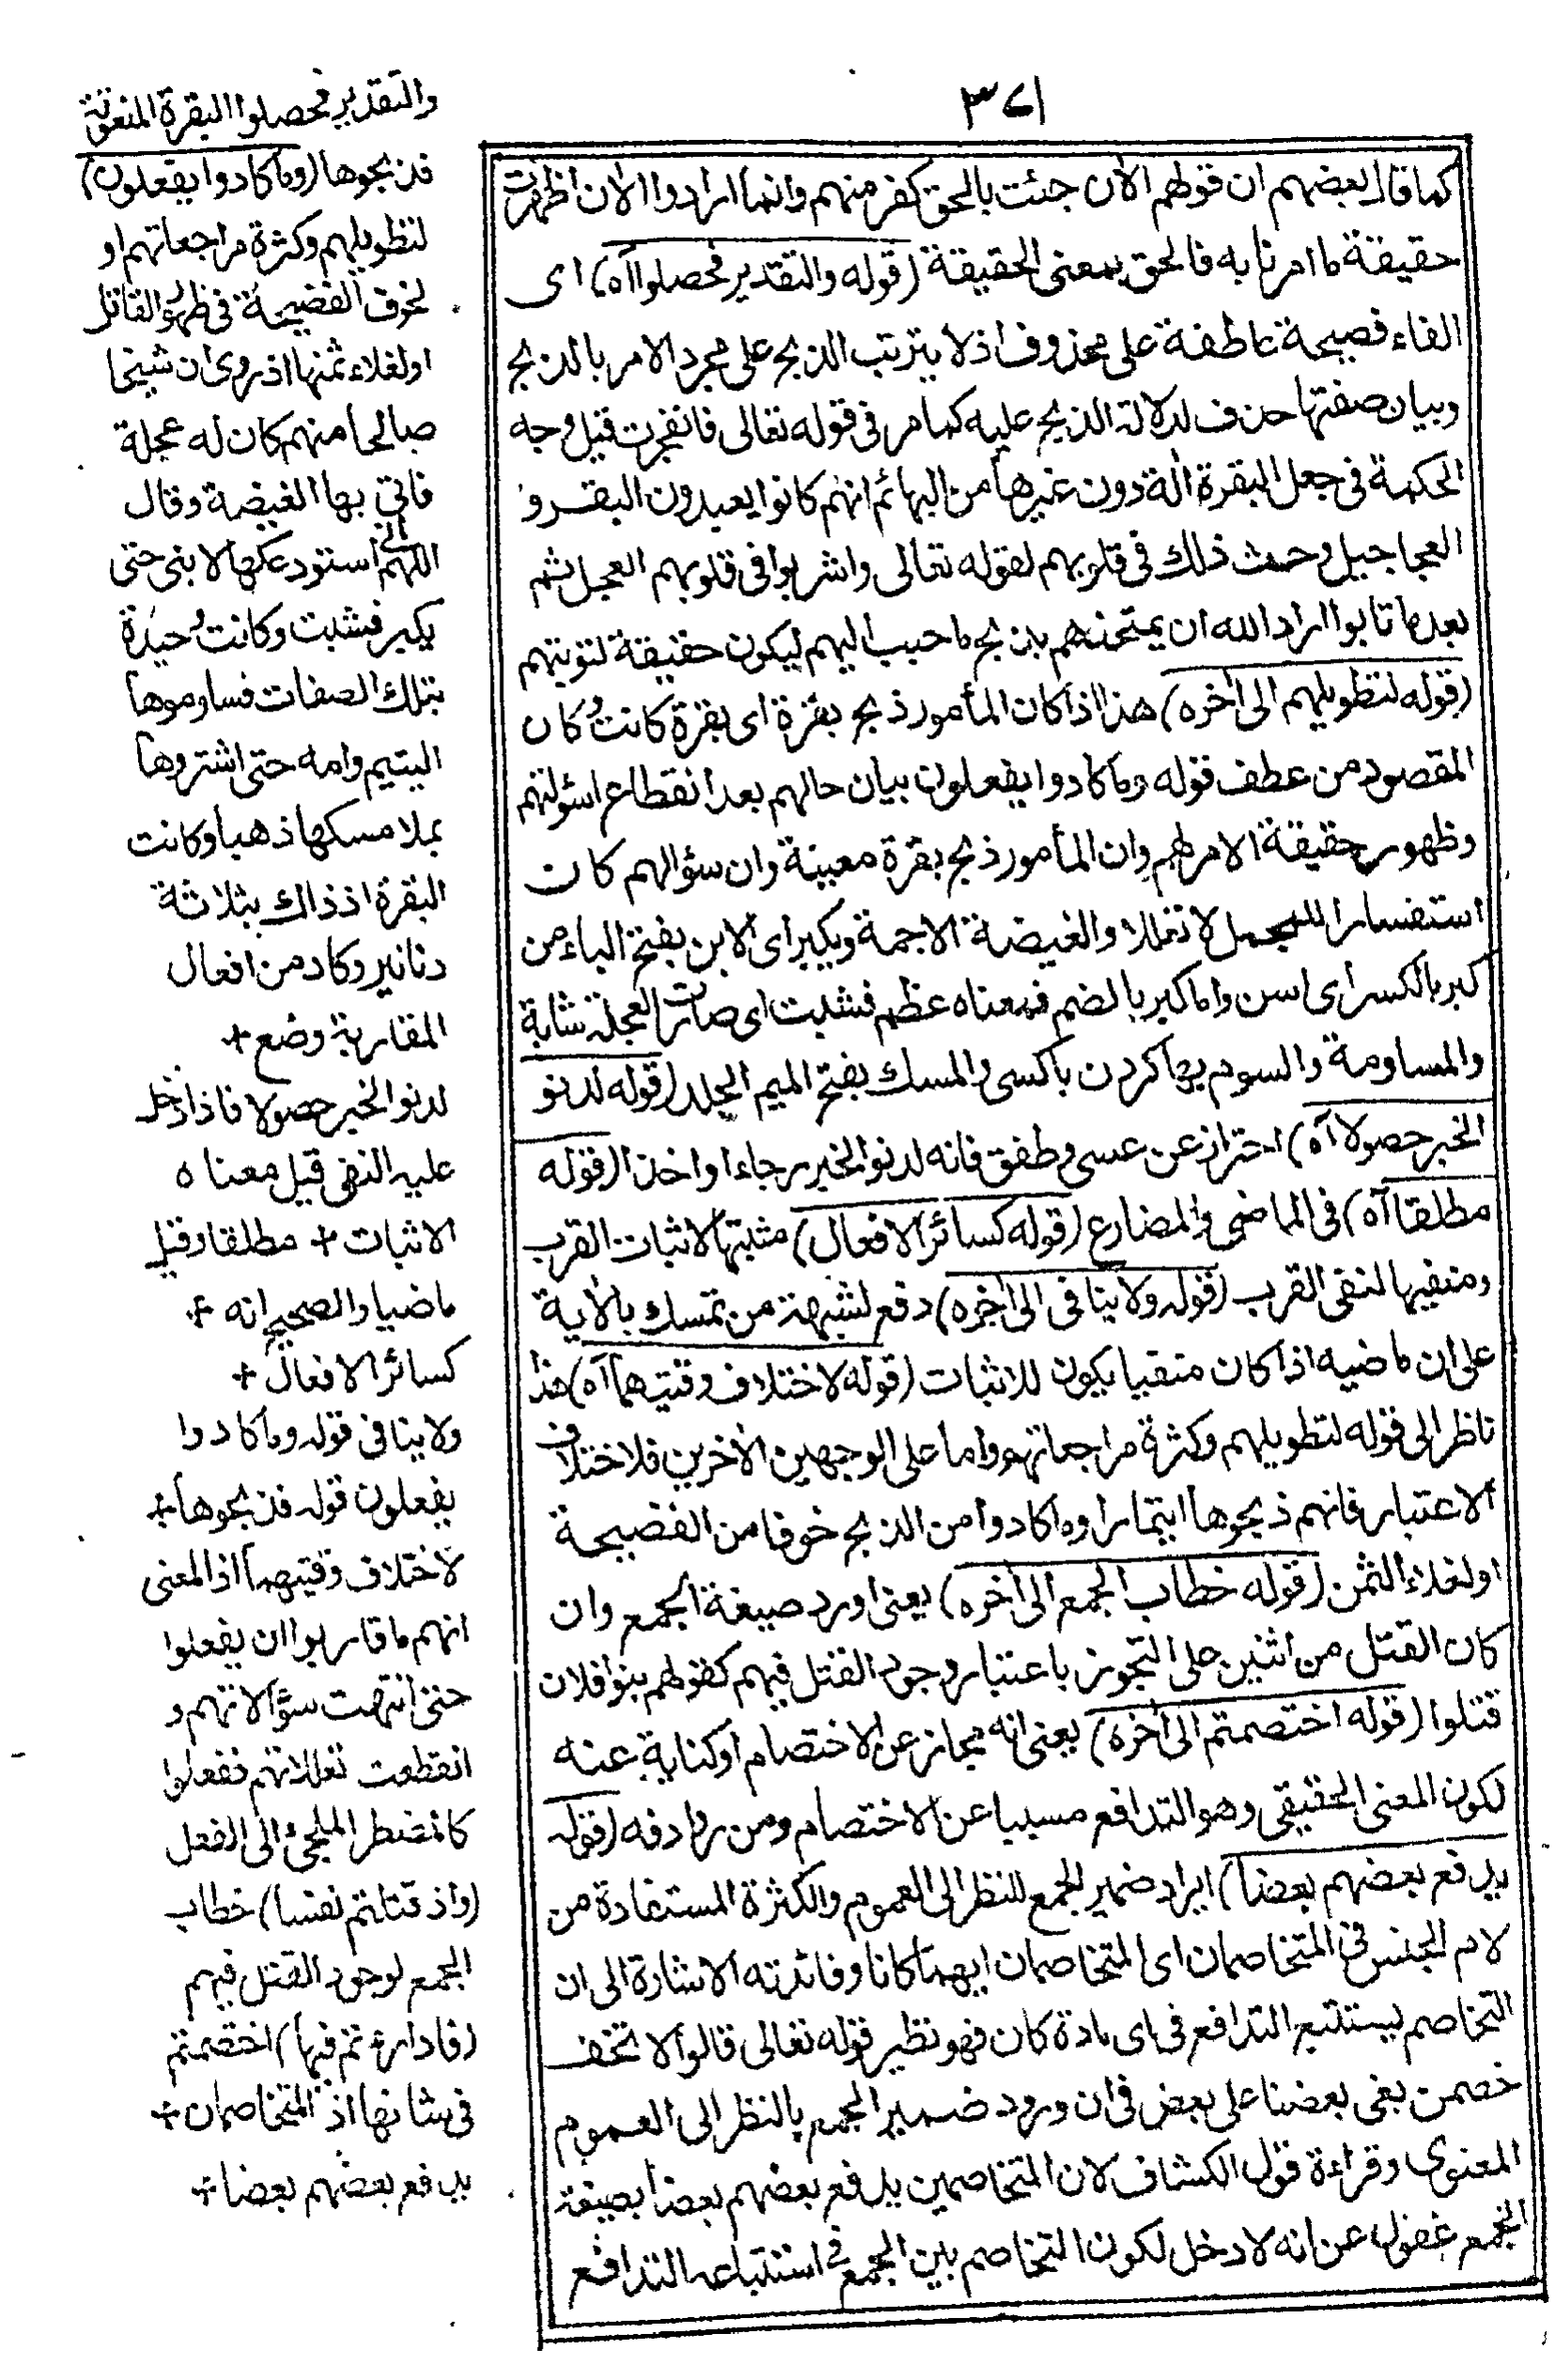 ٣٧١
كما قال بعضهم ان قولهم الآن جئت بالحق كفر منهم وانما ارادوا الآن اظهرت
حقيقة ما امرنا به فالحق بمعنى الحقيقة (قوله والتقدير فحصلوا آه) اى
الفاء فصيحة عاطفة على محذوف اذ لا يترتب الذبح على مجرد الامر بالذبح
وبيان صفتها حذف لدلالة الذبح عليه كما مر فى قوله تعالى فانفجرت قيل وجه
الحكمة فى جعل البقرة آلة دون غيرها من البهائم انهم كانوا يعبدون البقر و
العجاجيل وحبب ذلك فى قلوبهم لقوله تعالى واشربوا فى قلوبهم العجل ثم
بعد ما تابوا اراد الله ان يمتحنهم بذبح ما حبب اليهم ليكون حقيقة لتوبتهم
(قوله لتطويلهم الى آخره) هذا اذا كان المأمور ذبح بقرة اى بقرة كانت وكان
المقصود من عطف قوله وما كادوا يفعلون بيان حالهم بعد انقطاع اسئولتهم
وظهور حقيقة الامر لهم وان المأمور ذبح بقرة معينة وان سؤالهم كان
استفسارا للمجمل لا تعللا والغيضة الاجمة ويكبر اى الابن بفتح الباء من
كبر بالكسر اى اسن واما كبر بالضم فمعناه عظم فشبت اى صارت العجلة شابة
والمساومة والسوم بها كردن باكسى والمسك بفتح الميم الجلد (قوله لدنو
الخبر حصولا آه) احتراز عن عسى وطفق فانه لدنو الخبر رجاء او اخذا (قوله
مطلقا آه) فى الماضى والمضارع (قوله كسائر الافعال) مثبتها لاثبات القرب
ومنفيها لنفى القرب (قوله ولا ينافى الى آخره) دفع لشبهة من تمسك بالآية
على ان ماضيه اذا كان منفيا يكون للاثبات (قوله لاختلاف وقتيهما آه) هذا
ناظر الى قوله لتطويلهم وكثرة مراجعاتهم واما على الوجهين الآخرين فلاختلاف
الاعتبار فانهم ذبحوها ايتمارا وما كادوا من الذبح خوفا من الفضيحة
او لغلاء الثمن (قوله خطاب الجمع الى آخره) يعنى اورد صيغة الجمع وان
كان القتل من اثنين على التجوز باعتبار وجود القتل فيهم كقولهم بنو فلان
قتلوا (قوله اختصمتم الى آخره) يعنى انه مجاز عن الاختصام او كناية عنه
لكون المعنى الحقيقى وهو التدافع مسببا عن الاختصام ومن روادفه (قوله
يدفع بعضهم بعضا) ايراد ضمير الجمع للنظر الى العموم والكثرة المستفادة من
لام الجنس فى المتخاصمان اى المتخاصمان ايهما كانا وفائدته الاشارة الى ان
التخاصم يستتبع التدافع فى اى مادة كان فهو نظير قوله تعالى قالوا لا تخف
خصمن بغى بعضنا على بعض فى ان ورود ضمير الجمع بالنظر الى العموم
المعنوى وقراءة قول الكشاف لان المتخاصمين يدفع بعضهم بعضا بصيغة
الجمع غفول عن انه لا دخل لكون التخاصم بين الجمع فى استتباعه التدافع
والتقدير فحصلوا البقرة المنعوتة
فذبحوها (وما كادوا يفعلون)
لتطويلهم وكثرة مراجعاتهم او
لخوف الفضيحة فى ظهور القاتل
او لغلاء ثمنها اذ روى ان شيخا
صالحا منهم كان له عجلة
فاتى بها الغيضة وقال
اللهم انى استودعكها لابنى حتى
يكبر فشبت وكانت وحيدة
بتلك الصفات فساوموها
اليتيم وامه حتى اشتروها
بملا مسكها ذهبا وكانت
البقرة اذ ذاك بثلاثة
دنانير وكاد من افعال
المقاربة وضع +
لدنو الخبر حصولا فاذا دخل
عليه النفى قيل معناه
الاثبات + مطلقا وقيل
ماضيا والصحيح انه +
كسائر الافعال +
ولا ينافى قوله وما كادوا
يفعلون قوله فذبحوها +
لاختلاف وقتيهما اذ المعنى
انهم ما قاربوا ان يفعلوا
حتى انتهت سؤالاتهم و
انقطعت تعللاتهم ففعلوا
كالمضطر الملجئ الى الفعل
(واذ قتلتم نفسا) خطاب
الجمع لوجود القتل فيهم
(فادارءتم فيها) اختصمتم
فى شانها اذ المتخاصمان +
يدفع بعضهم بعضا +